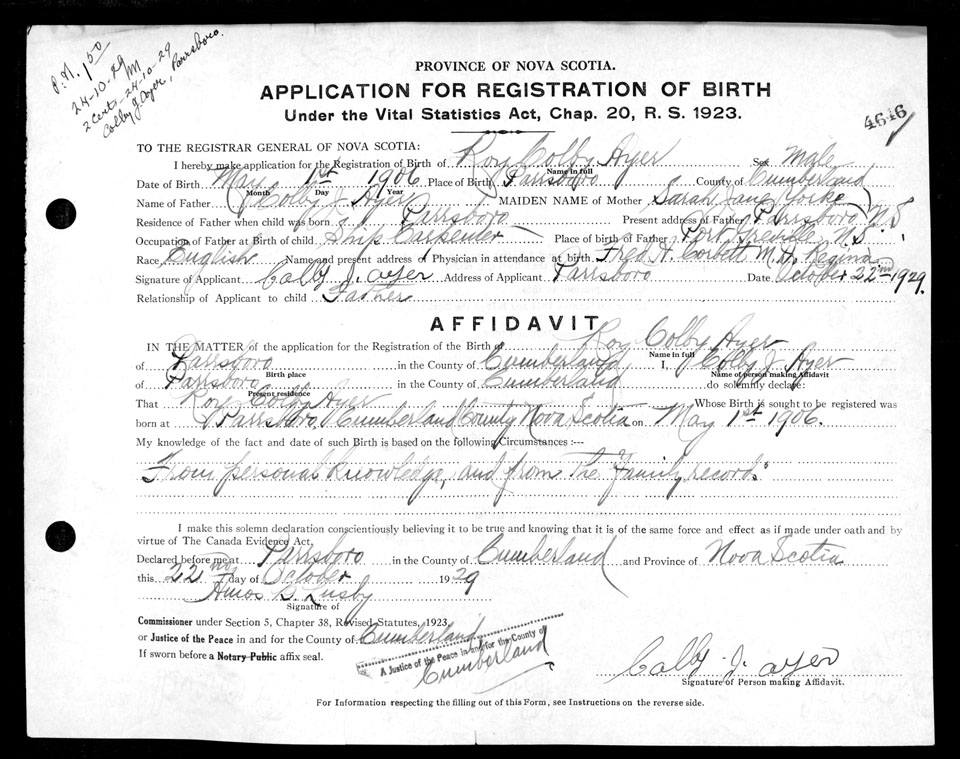 P.N. 1.50
24-10-29
2 Certs - 24-10-29
Colby J. Ayer, Parrsboro.
PROVINCE OF NOVA SCOTIA.
APPLICATION FOR REGISTRATION OF BIRTH
Under the Vital Statistics Act, Chap. 20, R. S. 1923.
4646
TO THE REGISTRAR GENERAL OF NOVA SCOTIA:
I hereby make application for the Registration of Birth of Roy Colby Ayer Sex Male
Name in full
Date of Birth May 1st 1906 Place of Birth Parrsboro County of Cumberland
Month Day Year
Name of Father Colby J. Ayer MAIDEN NAME of Mother Sarah Jane Yorke
Residence of Father when child was born Parrsboro Present address of Father Parrsboro, N.S.
Occupation of Father at Birth of child Ship Carpenter Place of birth of Father Port Greville N.S.
Race English Name and present address of Physician in attendance at birth Fred A. Corbett M.D. Regina
Signature of Applicant Colby J. Ayer Address of Applicant Parrsboro Date October 22nd 1929.
Relationship of Applicant to child Father
AFFIDAVIT
IN THE MATTER of the application for the Registration of the Birth of Roy Colby Ayer
Name in full
of Parrsboro in the County of Cumberland I, Colby J. Ayer
Birth place Name of person making Affidavit
of Parrsboro in the County of Cumberland do solemnly declare:
Present residence
That Roy Colby Ayer Whose Birth is sought to be registered was
born at Parrsboro Cumberland County Nova Scotia on May 1st 1906.
My knowledge of the fact and date of such Birth is based on the following Circumstances :---
From personal knowledge, and from the Family record.
I make this solemn declaration conscientiously believing it to be true and knowing that it is of the same force and effect as if made under oath and by
virtue of The Canada Evidence Act.
Declared before me at Parrsboro in the County of Cumberland and Province of Nova Scotia
this 22nd day of October 1929
Amos B. Lusby
Signature of
Commissioner under Section 5, Chapter 38, Revised Statutes, 1923,
or Justice of the Peace in and for the County of Cumberland
If sworn before a Notary Public affix seal.
A Justice of the Peace in and for the County of
Cumberland
Colby J. Ayer
Signature of Person making Affidavit.
For Information respecting the filling out of this Form, see Instructions on the reverse side.